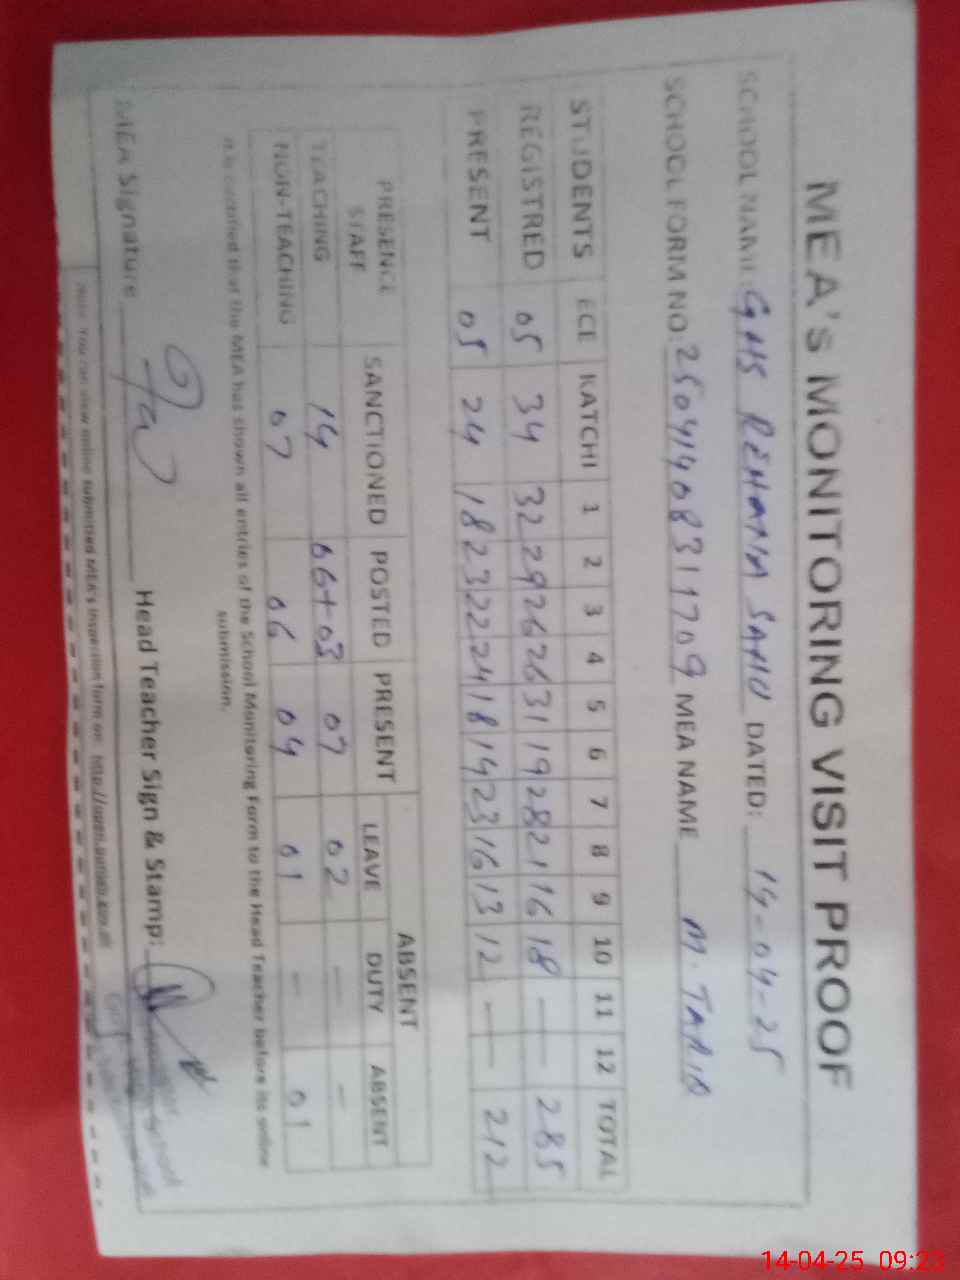 MEA's MONITORING VISIT PROOF
SCHOOL NAME: GHS DATED: 14-04-25
SCHOOL FORM NO: 25041408311709 MEA NAME M. TARIQ
STUDENTS ECE KATCHI 1 2 3 4 5 6 7 8 9 10 11 12 TOTAL
REGISTRED 05 34 32 29 26 26 31 19 28 21 16 18 — — 285
PRESENT 05 24 18 23 22 24 18 14 23 16 13 12 — — 212
PRESENCE STAFF SANCTIONED POSTED PRESENT ABSENT
LEAVE DUTY ABSENT
TEACHING 14 06+03 07 02 — —
NON-TEACHING 07 06 04 01 — 01
It is certified that the MEA has shown all entries of the School Monitoring Form to the Head Teacher before its online
submission.
MEA Signature Head Teacher Sign & Stamp:
Note: You can view online submitted MEA's inspection form on:
14-04-25 09:23